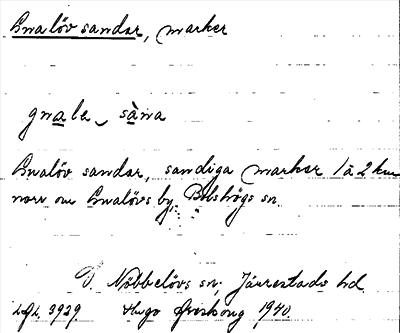 Gnalöv sandar, marker
gnale sàna
Gnalöv sandar, sandiga marker 1 à 2 km
norr om Gnalövs by, Bolshögs sn.
Ö. Nöbbelövs sn, Järrestads hd.
3929 Hugo Areskoug 1940.